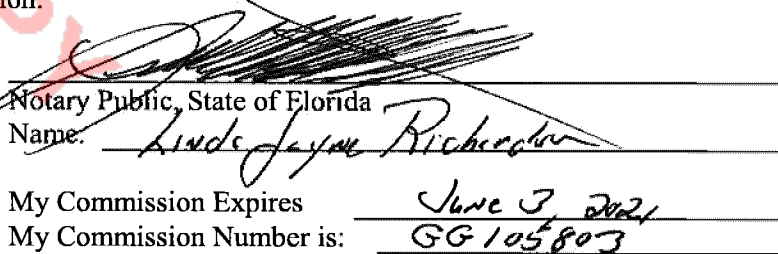 ion:
Notary Public, State of Florida
Name: Linda Jayne Richardson
My Commission Expires June 3, 2021
My Commission Number is: GG105803